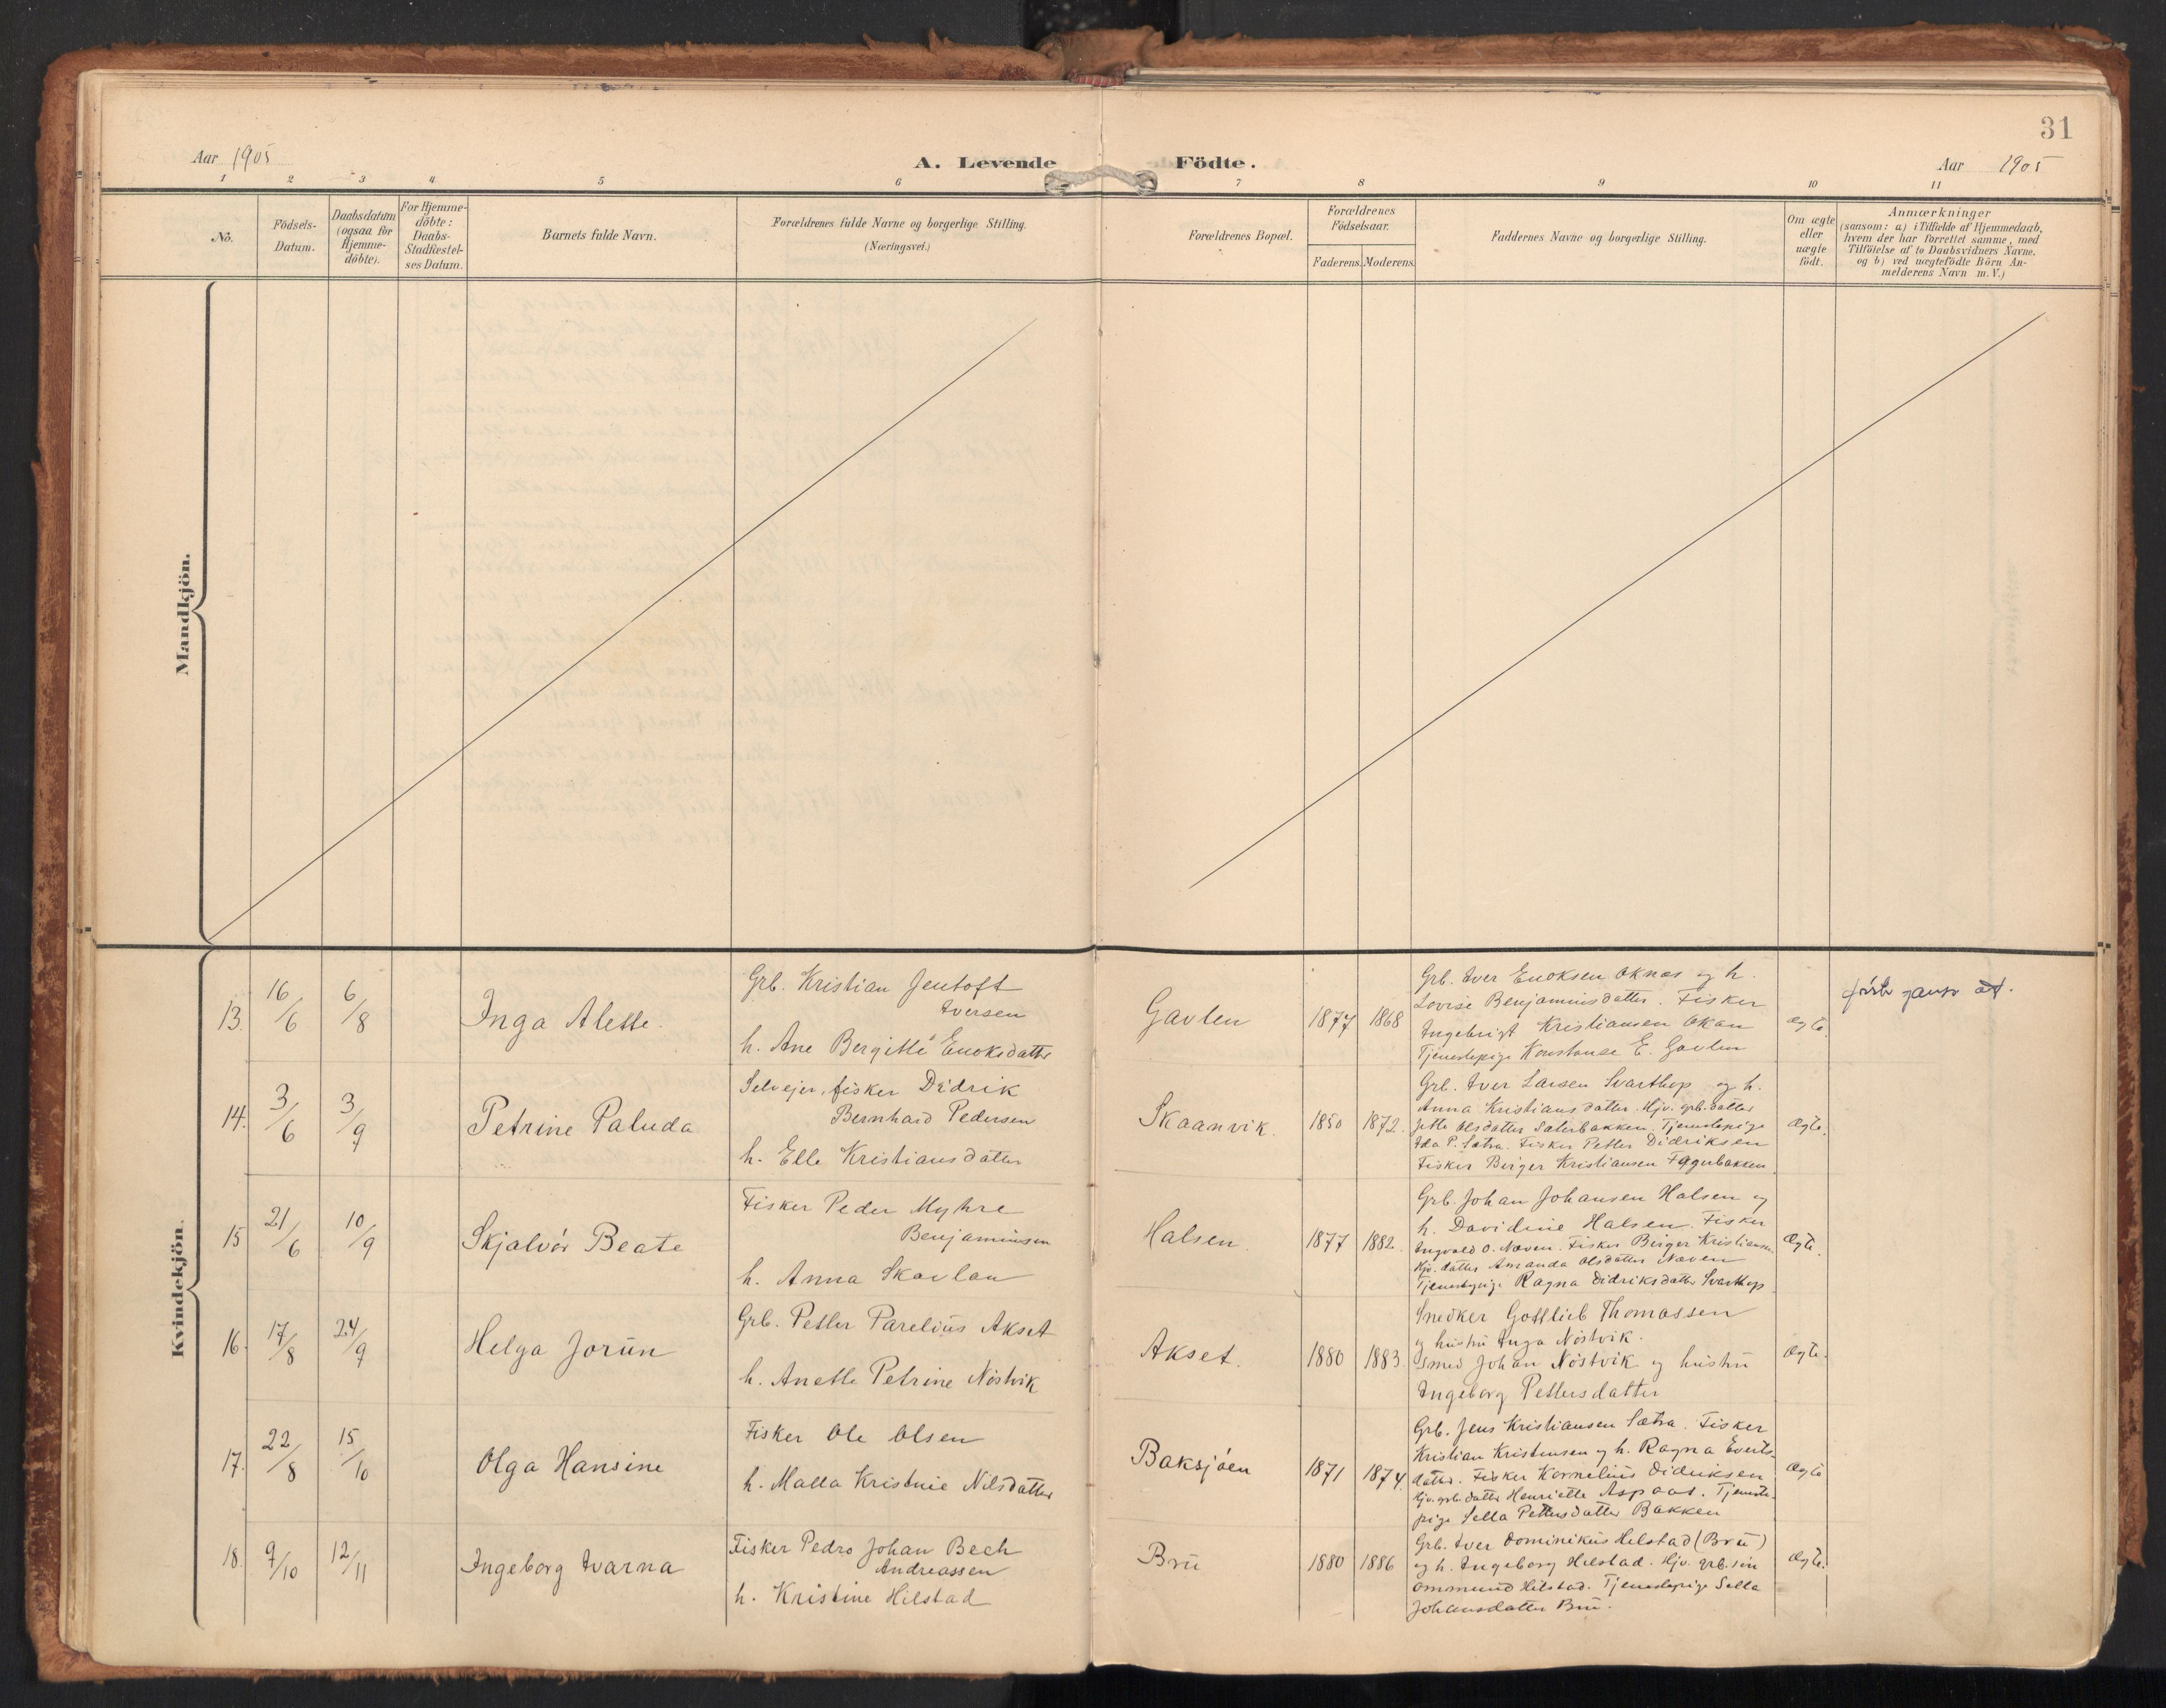 31
Aar 1905
A. Levende Födte.
Aar 1905
1 2 3 4 5 6 7 8 9 10 11
No.
Födsels-
Datum.
Daabsdatum
(ogsaa for
Hjemme-
döbte).
For Hjemme-
döbte:
Daabs-
Stadfæstel-
ses Datum.
Barnets fulde Navn.
Forældrenes fulde Navne og borgerlige Stilling.
(Næringsvei.)
Forældrenes Bopæl.
Forældrenes
Födselsaar.
Faderens. Moderens.
Faddernes Navne og borgerlige Stilling.
Om ægte
eller
uægte
födt.
Anmærkninger
(saasom: a) i Tilfælde af Hjemmedaab,
hvem der har forrettet samme, med
Tilföielse af to Daabsvidners Navne.
og b) ved uægtefödte Börn An-
melderens Navn m. V.)
Mandkjön.
Kvindekjön.
13. 16/6 6/8
Inga Alette.
Grb. Kristian Jentoft
Iversen
h. Ane Bergitte Enoksdatter
Gavlen
1877 1868
Grb. Iver Enoksen Oknæs og h.
Lovise Benjaminsdatter. Fisker
Ingebrigt Kristiansen Okan
Tjenestepige Konstanse E. Gavlen
ægte.
14. 3/6 3/9
Petrine Paluda
Selvejer, fisker Didrik
Bernhard Pedersen
h. Elle Kristiansdatter
Skaanvik.
1850 1872.
Grb. Iver Larsen Svarthop og h.
Anna Kristiansdatter. Hjv. grb. datter
Jette Olsdatter Saterbakken. Tjenestepige
Ida P. Sætra. Fisker Petter Didriksen
Fisker Birger Kristiansen Fagerbakken
Ægte.
15 21/6 10/9
Skjalvör Beate
Fisker Peder Myhre
Benjaminsen
h. Anna Skavlan
Halsen.
1877 1882.
Grb. Johan Johansen Halsen og
h. Davidine Halsen. Fisker
Ingvald O. Næven. Fisker Birger Kristiansen
Hjv. datter Amanda Olsdatter Næven
Tjenestepige Ragna Didriksdatter Svarthop
Ægte.
16. 17/8 24/9
Helga Jorün
Grb. Petter Parelius Akset
h. Anette Petrine Nöstvik
Akset.
1880 1883.
Snedker Gottlieb Thomassen
og hustru Inga Nöstvik.
Smed Johan Nöstvik og hustru
Ingeborg Pettersdatter
Ægte.
17. 22/8 15/10
Olga Hansine
Fisker Ole Olsen
h. Malla Kristine Nilsdatter
Baksjöen
1871 1874.
Grb. Jens Kristiansen Sætra. Fisker
Kristian Kristensen og h. Ragna Everts-
datter. Fisker Kornelius Didriksen
Hjv. grb. datter Henriette Aspaas. Tjeneste-
pige Sella Pettersdatter Bakken
Ægte
18. 9/10 12/11
Ingeborg Ivarna
Fisker Pedro Johan Bech
Andreassen
h. Kristine Hilstad
Brü
1880 1886
Grb. Iver Dominikus Hilstad (Brü)
og h. Ingeborg Hilstad. Hjv. grb. sön
Ommund Hilstad. Tjenestepige Sella
Johansdatter Brü.
Ægte.